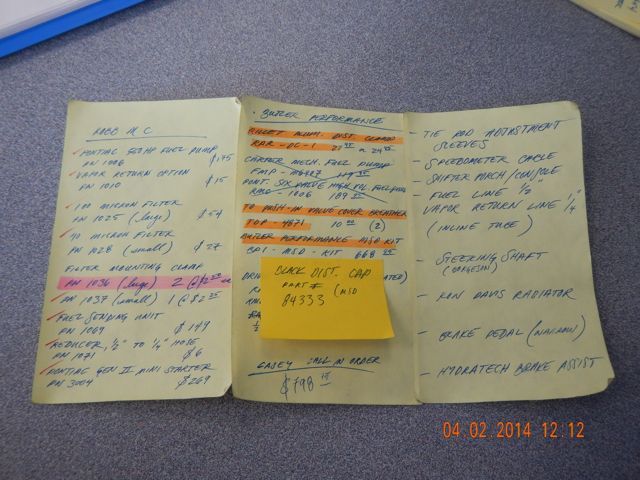 ROBB M C
PONTIAC 550HP FUEL PUMP
PN 1006 $145
VAPOR RETURN OPTION
PN 1010 $15
100 MICRON FILTER
PN 1025 (large) $54
40 MICRON FILTER
PN 1028 (small) $27
FILTER MOUNTING CLAMP
PN 1036 (large) 2 @
PN 1037 (small) 1 @ $2
FUEL SENDING UNIT
PN 1069 $149
REDUCER, 1/2" TO 1/4" HOSE
PN 1071 $6
PONTIAC GEN II MINI STARTER
PN 3004 $269
BUTLER PERFORMANCE
BILLET ALUM. DIST. CLAMP
CARTER MECH. FUEL PUMP
PONT. SIX VALVE HIGH VOL FUEL PUMP
1006 189
TO PUSH-IN VALVE COVER BREATHER
4871 10 (2)
BUTLER PERFORMANCE MSD KIT
BPI - MSD - KIT 668
BLACK DIST. CAP
PART # (MSD
84333
CASEY CALL IN ORDER
$798
- TIE ROD ADJUSTMENT
SLEEVES
- SPEEDOMETER CABLE
- SHIFTER PORCH/CONSOLE
- FUEL LINE 1/2"
- VAPOR RETURN LINE 1/4"
(INLINE TUBE)
- STEERING SHAFT
(BORGESON)
- RON DAVIS RADIATOR
- BRAKE PEDAL (NARROW)
- HYDRATECH BRAKE ASSIST
04.02.2014 12:12